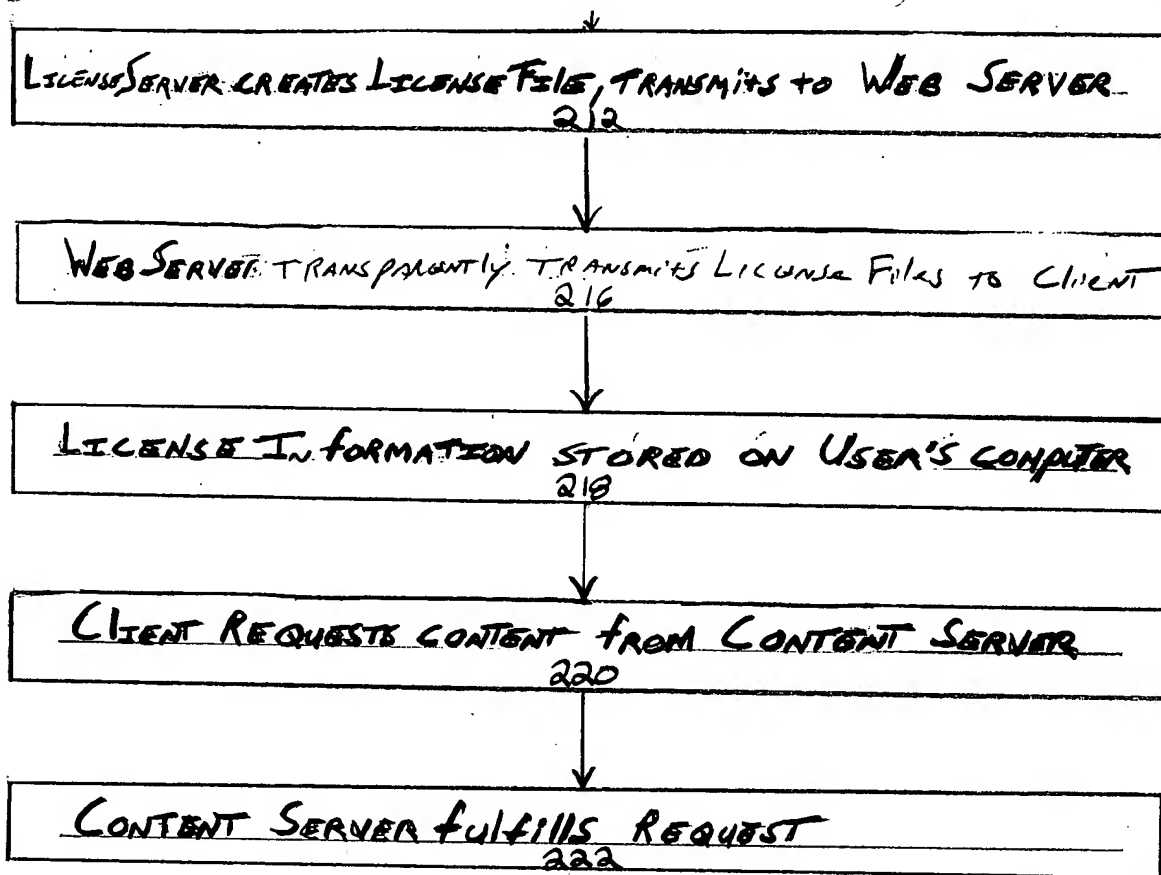 License Server creates License File, transmits to Web Server
212
Web Server transparently transmits License Files to Client
216
License Information stored on User's computer
218
Client Requests content from Content Server
220
Content Server fulfills Request
222